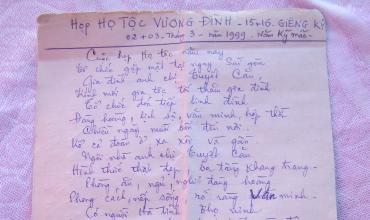 Họp HỌ TỘC VƯƠNG ĐÌNH - 15+16. GIÊNG KỶ
02+03. Tháng 3 - năm 1999. Năm Kỷ mão
Cuộc họp Họ tộc năm này
Tổ chức gặp mặt tại ngay Sài gòn
Gia đình anh chị Tuyết Cầu,
Kính mời gia tộc tới thăm gia đình
Tổ chức đón tiếp linh đình
Đàng hoàng, lịch sự, văn minh, hợp thời.
Chiều ngày mười bốn đến nơi.
Kể cả đoàn ở xa xôi và gần
Ngôi nhà anh chị Tuyết Cầu
Hình thức thật đẹp ba tầng khang trang.
Phòng ăn, ngủ, nghỉ đàng hoàng
Phong cách, nếp sống rõ ràng văn minh.
Có người